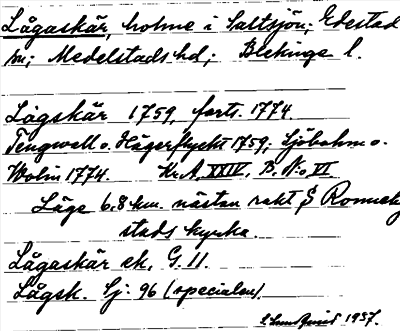 Lågaskär, holme i Saltsjön; Edestad
sn; Medelstads hd; Blekinge l.
Lågskär 1759, forts. 1774
Tengwall o. Hägerflycht 1759; Sjöbohm o.
Wolin 1774. Kr. A. XXIV, B. N:o VI
Läge 6.8 km. nästan rakt S Ronneby
stads kyrka.
Lågaskär ek. G. 11.
Lågsk. Sj: 96 (specialen)
1957.